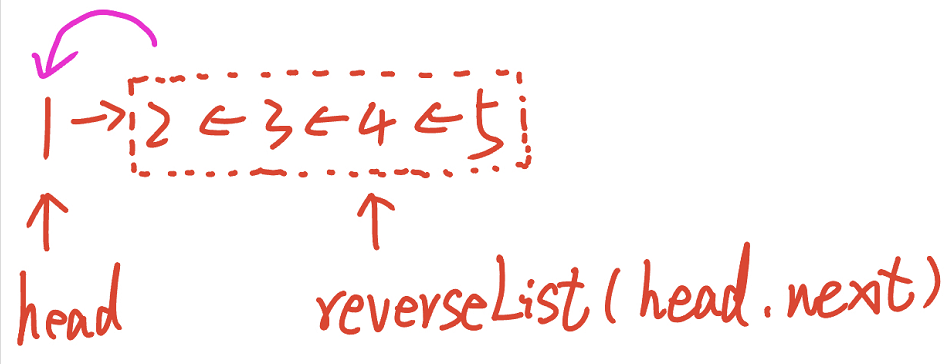 1 → 2 ← 3 ← 4 ← 5
head
reverseList(head.next)